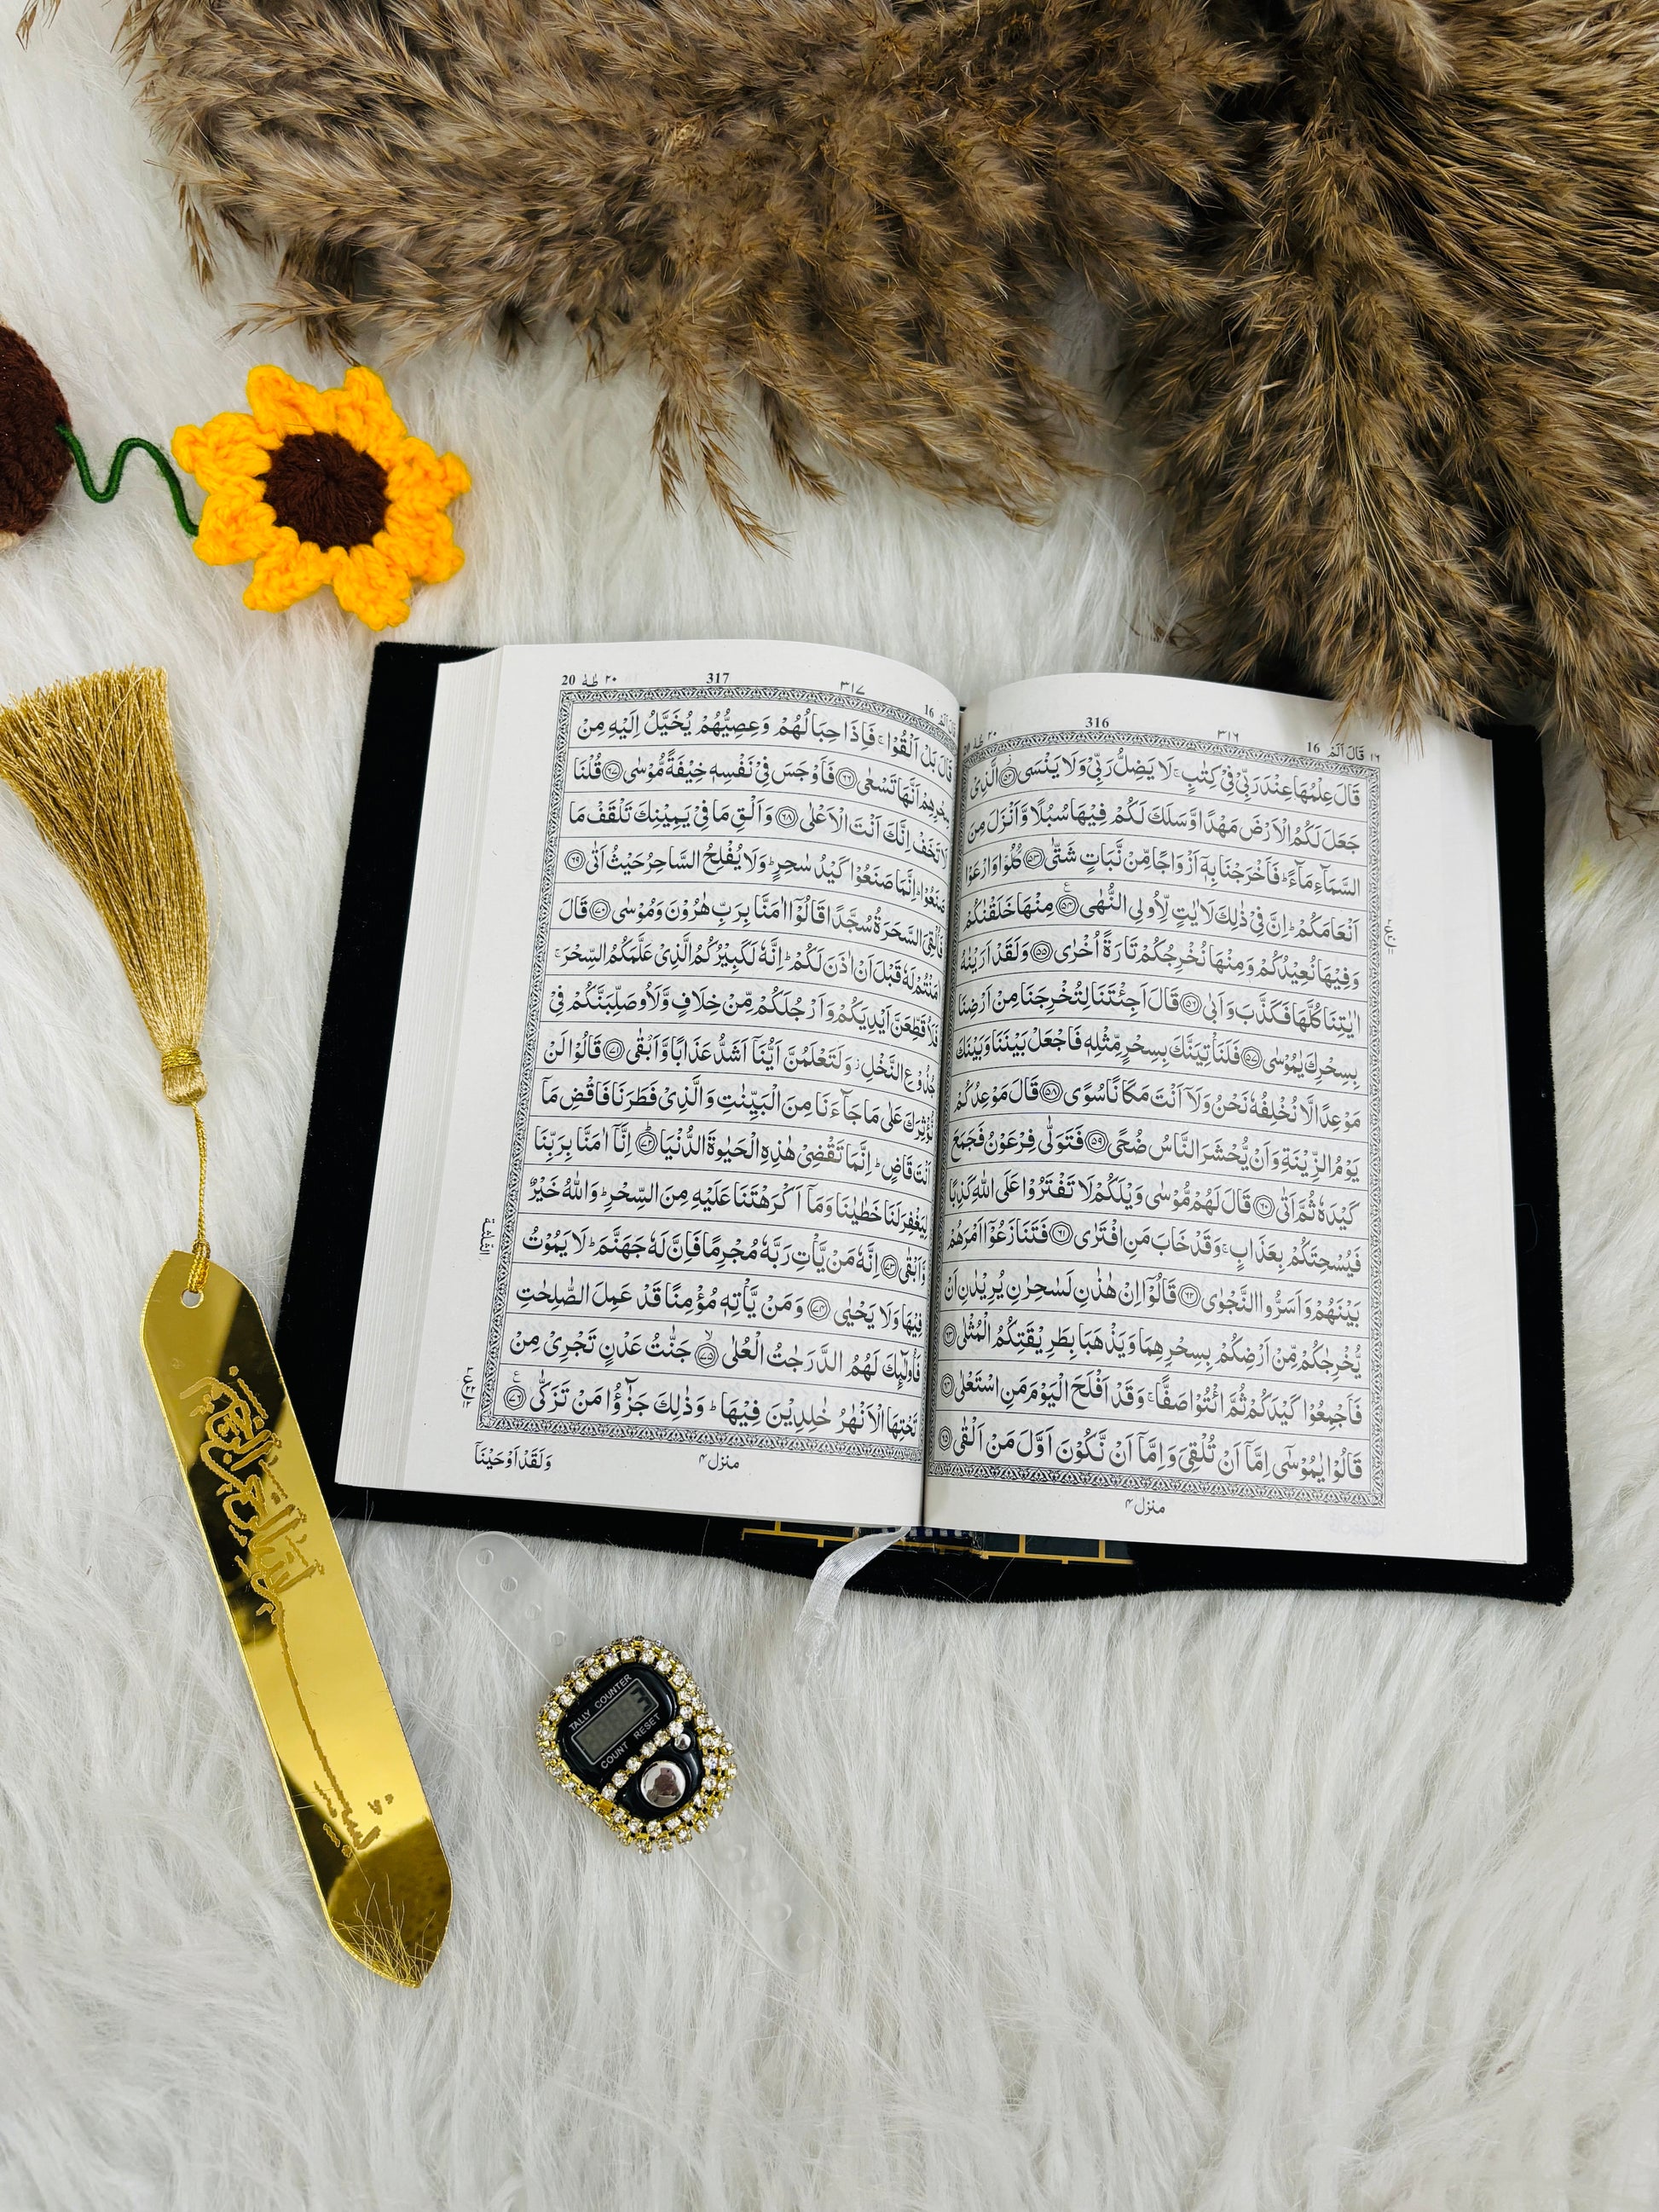 ١٦ قَالَ اَلَمْ 16
٣١٦
316
٢٠
قَالَ عِلْمُهَا عِنْدَ رَبِّيْ فِيْ كِتٰبٍ ۚ لَا يَضِلُّ رَبِّيْ وَلَا يَنْسَى ﴿٥٢﴾ الَّذِيْ
جَعَلَ لَكُمُ الْاَرْضَ مَهْدًا وَّسَلَكَ لَكُمْ فِيْهَا سُبُلًا وَّاَنْزَلَ مِنَ
السَّمَآءِ مَآءً ؕ فَاَخْرَجْنَا بِهٖٓ اَزْوَاجًا مِّنْ نَّبَاتٍ شَتّٰى ﴿٥٣﴾ كُلُوْا وَارْعَوْا
اَنْعَامَكُمْ ؕ اِنَّ فِيْ ذٰلِكَ لَاٰيٰتٍ لِّاُولِي النُّهٰى ﴿٥٤﴾ مِنْهَا خَلَقْنٰكُمْ
وَفِيْهَا نُعِيْدُكُمْ وَمِنْهَا نُخْرِجُكُمْ تَارَةً اُخْرٰى ﴿٥٥﴾ وَلَقَدْ اَرَيْنٰهُ
اٰيٰتِنَا كُلَّهَا فَكَذَّبَ وَاَبٰى ﴿٥٦﴾ قَالَ اَجِئْتَنَا لِتُخْرِجَنَا مِنْ اَرْضِنَا
بِسِحْرِكَ يٰمُوْسٰى ﴿٥٧﴾ فَلَنَاْتِيَنَّكَ بِسِحْرٍ مِّثْلِهٖ فَاجْعَلْ بَيْنَنَا وَبَيْنَكَ
مَوْعِدًا لَّا نُخْلِفُهٗ نَحْنُ وَلَآ اَنْتَ مَكَانًا سُوًى ﴿٥٨﴾ قَالَ مَوْعِدُكُمْ
يَوْمُ الزِّيْنَةِ وَاَنْ يُّحْشَرَ النَّاسُ ضُحًى ﴿٥٩﴾ فَتَوَلّٰى فِرْعَوْنُ فَجَمَعَ
كَيْدَهٗ ثُمَّ اَتٰى ﴿٦٠﴾ قَالَ لَهُمْ مُّوْسٰى وَيْلَكُمْ لَا تَفْتَرُوْا عَلَى اللّٰهِ كَذِبًا
فَيُسْحِتَكُمْ بِعَذَابٍ ۚ وَقَدْ خَابَ مَنِ افْتَرٰى ﴿٦١﴾ فَتَنَازَعُوْٓا اَمْرَهُمْ
بَيْنَهُمْ وَاَسَرُّوا النَّجْوٰى ﴿٦٢﴾ قَالُوْٓا اِنْ هٰذٰنِ لَسٰحِرٰنِ يُرِيْدٰنِ اَنْ
يُّخْرِجٰكُمْ مِّنْ اَرْضِكُمْ بِسِحْرِهِمَا وَيَذْهَبَا بِطَرِيْقَتِكُمُ الْمُثْلٰى ﴿٦٣﴾
فَاَجْمِعُوْا كَيْدَكُمْ ثُمَّ ائْتُوْا صَفًّا ۚ وَقَدْ اَفْلَحَ الْيَوْمَ مَنِ اسْتَعْلٰى ﴿٦٤﴾
قَالُوْا يٰمُوْسٰٓى اِمَّآ اَنْ تُلْقِيَ وَاِمَّآ اَنْ نَّكُوْنَ اَوَّلَ مَنْ اَلْقٰى ﴿٦٥﴾
منزل ٤
16
٣١٧
317
٢٠ طٰهٰ 20
قَالَ بَلْ اَلْقُوْا ۚ فَاِذَا حِبَالُهُمْ وَعِصِيُّهُمْ يُخَيَّلُ اِلَيْهِ مِنْ
سِحْرِهِمْ اَنَّهَا تَسْعٰى ﴿٦٦﴾ فَاَوْجَسَ فِيْ نَفْسِهٖ خِيْفَةً مُّوْسٰى ﴿٦٧﴾ قُلْنَا
لَا تَخَفْ اِنَّكَ اَنْتَ الْاَعْلٰى ﴿٦٨﴾ وَاَلْقِ مَا فِيْ يَمِيْنِكَ تَلْقَفْ مَا
صَنَعُوْا ؕ اِنَّمَا صَنَعُوْا كَيْدُ سٰحِرٍ ؕ وَلَا يُفْلِحُ السَّاحِرُ حَيْثُ اَتٰى ﴿٦٩﴾
فَاُلْقِيَ السَّحَرَةُ سُجَّدًا قَالُوْٓا اٰمَنَّا بِرَبِّ هٰرُوْنَ وَمُوْسٰى ﴿٧٠﴾ قَالَ
اٰمَنْتُمْ لَهٗ قَبْلَ اَنْ اٰذَنَ لَكُمْ ؕ اِنَّهٗ لَكَبِيْرُكُمُ الَّذِيْ عَلَّمَكُمُ السِّحْرَ ۚ
فَلَاُقَطِّعَنَّ اَيْدِيَكُمْ وَاَرْجُلَكُمْ مِّنْ خِلَافٍ وَّلَاُوصَلِّبَنَّكُمْ فِيْ
جُذُوْعِ النَّخْلِ ؗ وَلَتَعْلَمُنَّ اَيُّنَآ اَشَدُّ عَذَابًا وَّاَبْقٰى ﴿٧١﴾ قَالُوْا لَنْ
نُّؤْثِرَكَ عَلٰى مَا جَآءَنَا مِنَ الْبَيِّنٰتِ وَالَّذِيْ فَطَرَنَا فَاقْضِ مَآ
اَنْتَ قَاضٍ ؕ اِنَّمَا تَقْضِيْ هٰذِهِ الْحَيٰوةَ الدُّنْيَا ﴿٧٢﴾ اِنَّآ اٰمَنَّا بِرَبِّنَا
لِيَغْفِرَ لَنَا خَطٰيٰنَا وَمَآ اَكْرَهْتَنَا عَلَيْهِ مِنَ السِّحْرِ ؕ وَاللّٰهُ خَيْرٌ
وَّاَبْقٰى ﴿٧٣﴾ اِنَّهٗ مَنْ يَّاْتِ رَبَّهٗ مُجْرِمًا فَاِنَّ لَهٗ جَهَنَّمَ ؕ لَا يَمُوْتُ
فِيْهَا وَلَا يَحْيٰى ﴿٧٤﴾ وَمَنْ يَّاْتِهٖ مُؤْمِنًا قَدْ عَمِلَ الصّٰلِحٰتِ
فَاُولٰٓئِكَ لَهُمُ الدَّرَجٰتُ الْعُلٰى ﴿٧٥﴾ جَنّٰتُ عَدْنٍ تَجْرِيْ مِنْ
تَحْتِهَا الْاَنْهٰرُ خٰلِدِيْنَ فِيْهَا ؕ وَذٰلِكَ جَزٰٓؤُا مَنْ تَزَكّٰى ﴿٧٦﴾
الثلثة
منزل ٤
وَلَقَدْ اَوْحَيْنَآ
TALLY COUNTER
COUNT RESET